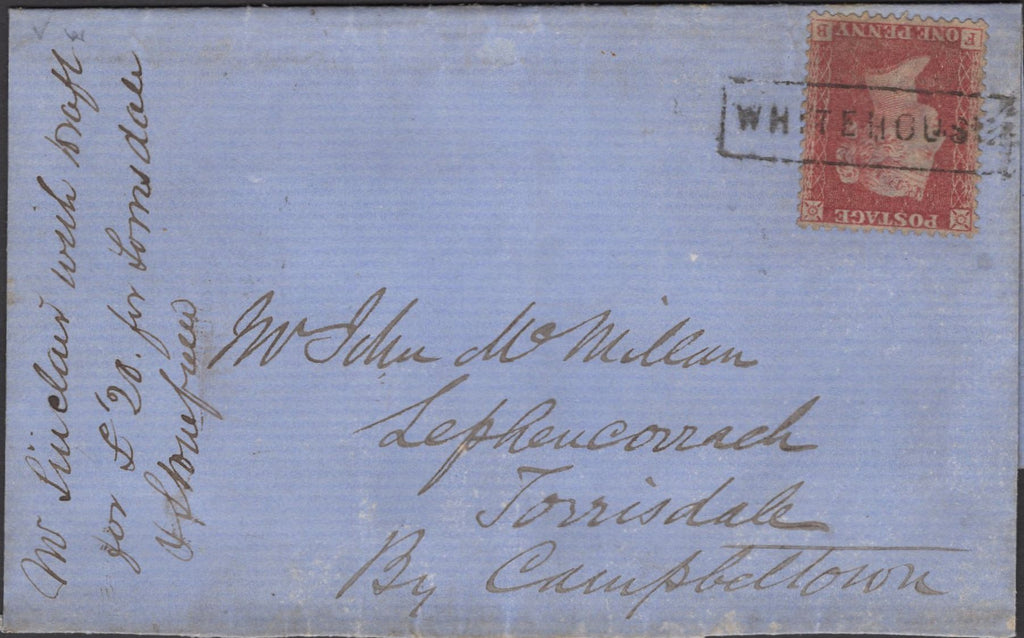 Mr Sinclair with draft
for £20. for Lorrisdale
& Stonefield
F ONE PENNY B
WHITEHOUSE
POSTAGE
Mr John McMillan
Lephencorrach
Torrisdale
By Campbeltown